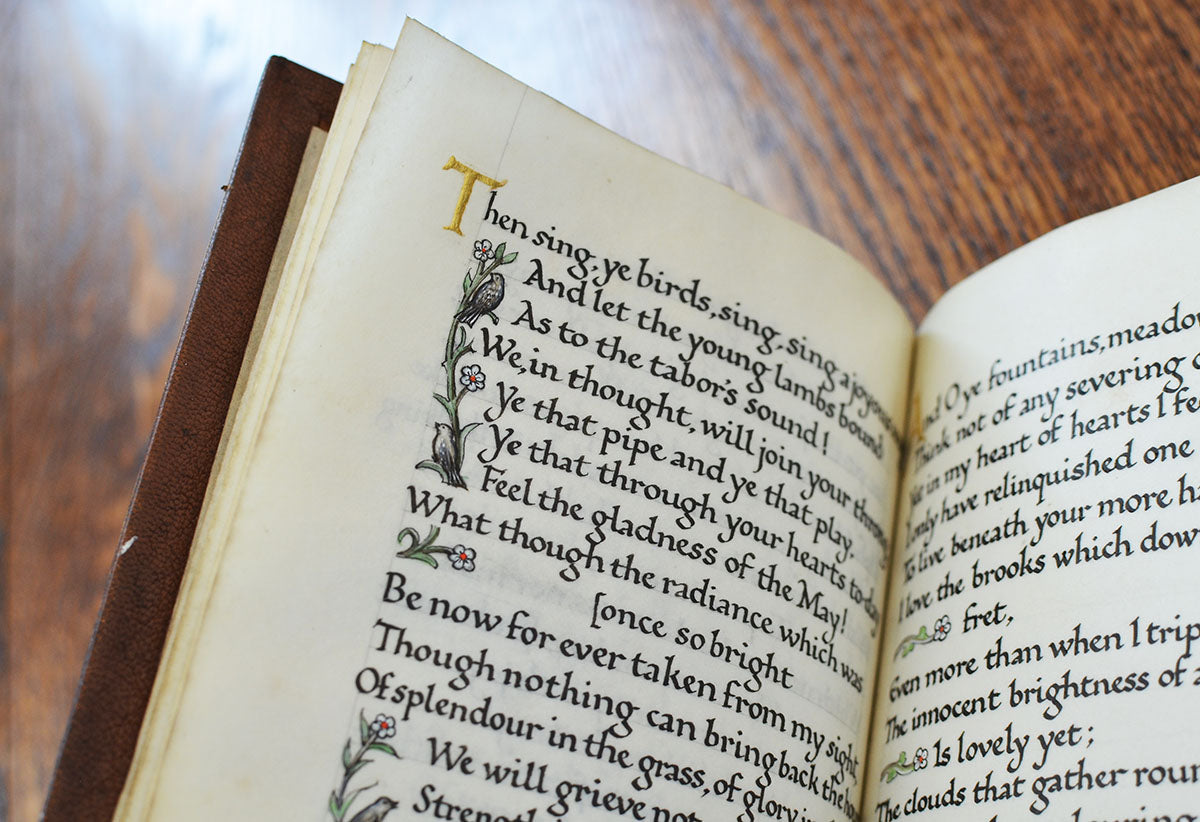 Then sing, ye birds, sing, sing a joyous
And let the young lambs bound
As to the tabor's sound!
We, in thought, will join your throng
Ye that pipe and ye that play.
Ye that through your hearts to-day
Feel the gladness of the May!
What though the radiance which was
[once so bright
Be now for ever taken from my sight,
Though nothing can bring back the
Of splendour in the grass, of glory in
We will grieve not
And O ye fountains, meadow
Think not of any severing
Yet in my heart of hearts I
I only have relinquished one
To live beneath your more
I love the brooks which dow
fret,
Even more than when I trip
The innocent brightness of a
Is lovely yet;
The clouds that gather roun